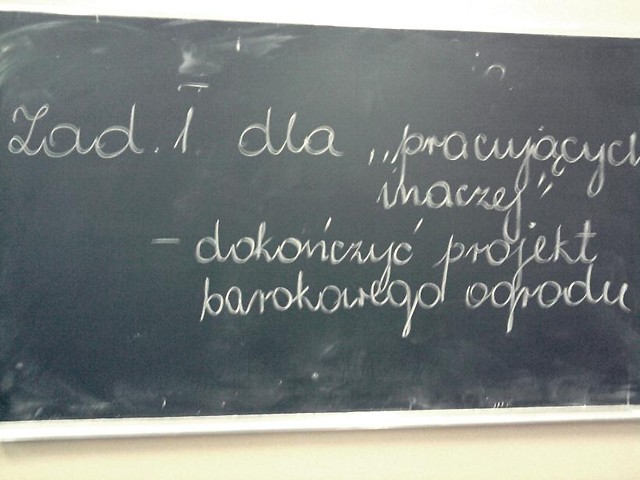 Zad. 1 dla „pracujących
inaczej"
- dokończyć projekt
barokowego ogrodu